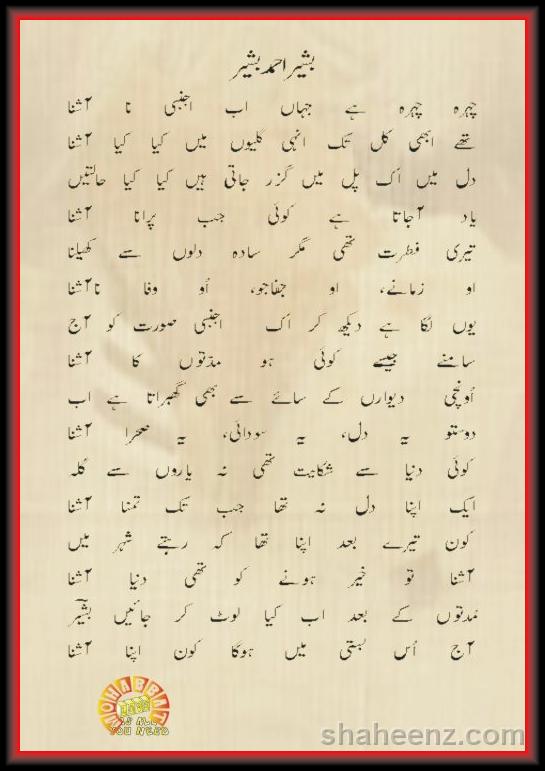 بشیر احمد بشیر
چہرہ چہرہ ہے جہاں اب اجنبی نا آشنا
تھے ابھی کل تک انہی گلیوں میں کیا کیا آشنا
دل میں اک پل میں گزر جاتی ہیں کیا کیا حالتیں
یاد آجاتا ہے کوئی جب پرانا آشنا
تیری فطرت تھی مگر سادہ دلوں سے کھیلنا
او زمانے، او جفاجو، اُو وفا ناآشنا
یوں لگا ہے دیکھ کر اک اجنبی صورت کو آج
سامنے جیسے کوئی ہو مدّتوں کا آشنا
اُونچی دیوارں کے سائے سے بھی گھبراتا ہے اب
دوستو یہ دل، یہ سودائی، یہ صحرا آشنا
کوئی دنیا سے شکایت تھی نہ یاروں سے گلہ
ایک اپنا دل نہ تھا جب تک تمنا آشنا
کون تیرے بعد اپنا تھا کہ رہتے شہر میں
آشنا تو خیر ہونے کو تھی دنیا آشنا
مُدتوں کے بعد اب کیا لوٹ کر جائیں بشیرؔ
آج اُس بستی میں ہوگا کون اپنا آشنا
MOHABBAT
IS ALL
YOU NEED
shaheenz.com